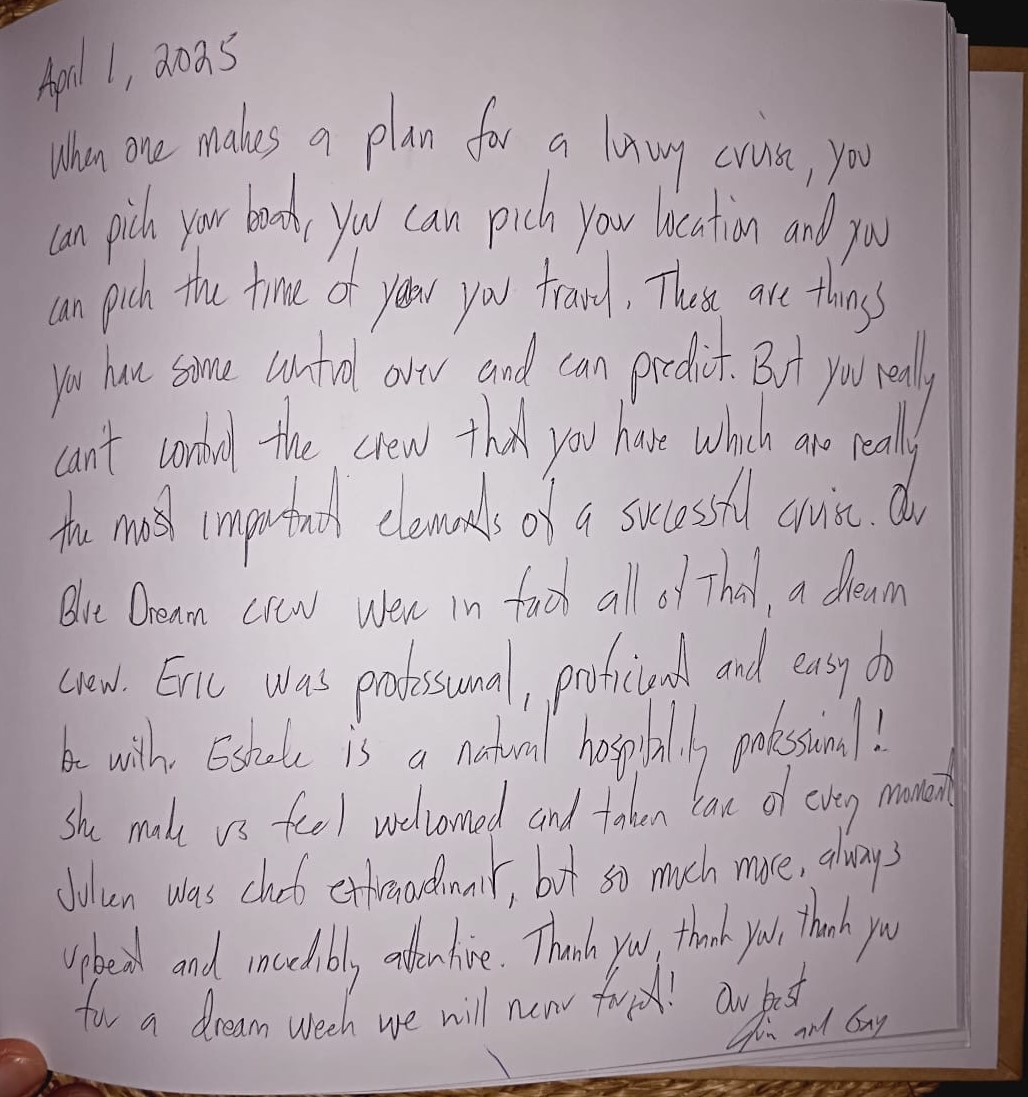 April 1, 2025
When one makes a plan for a luxury cruise, you
can pick your boat, you can pick your location and you
can pick the time of year you travel. These are things
you have some control over and can predict. But you really
can't control the crew that you have which are really
the most important elements of a successful cruise. Our
Blue Dream crew were in fact all of that, a dream
crew. Eric was professional, proficient and easy to
be with. Estelle is a natural hospitality professional!
She made us feel welcomed and taken care of every moment
Julien was chef extraordinair, but so much more, always
upbeat and incredibly attentive. Thank you, thank you, thank you
for a dream week we will never forget! Our best
and Gary